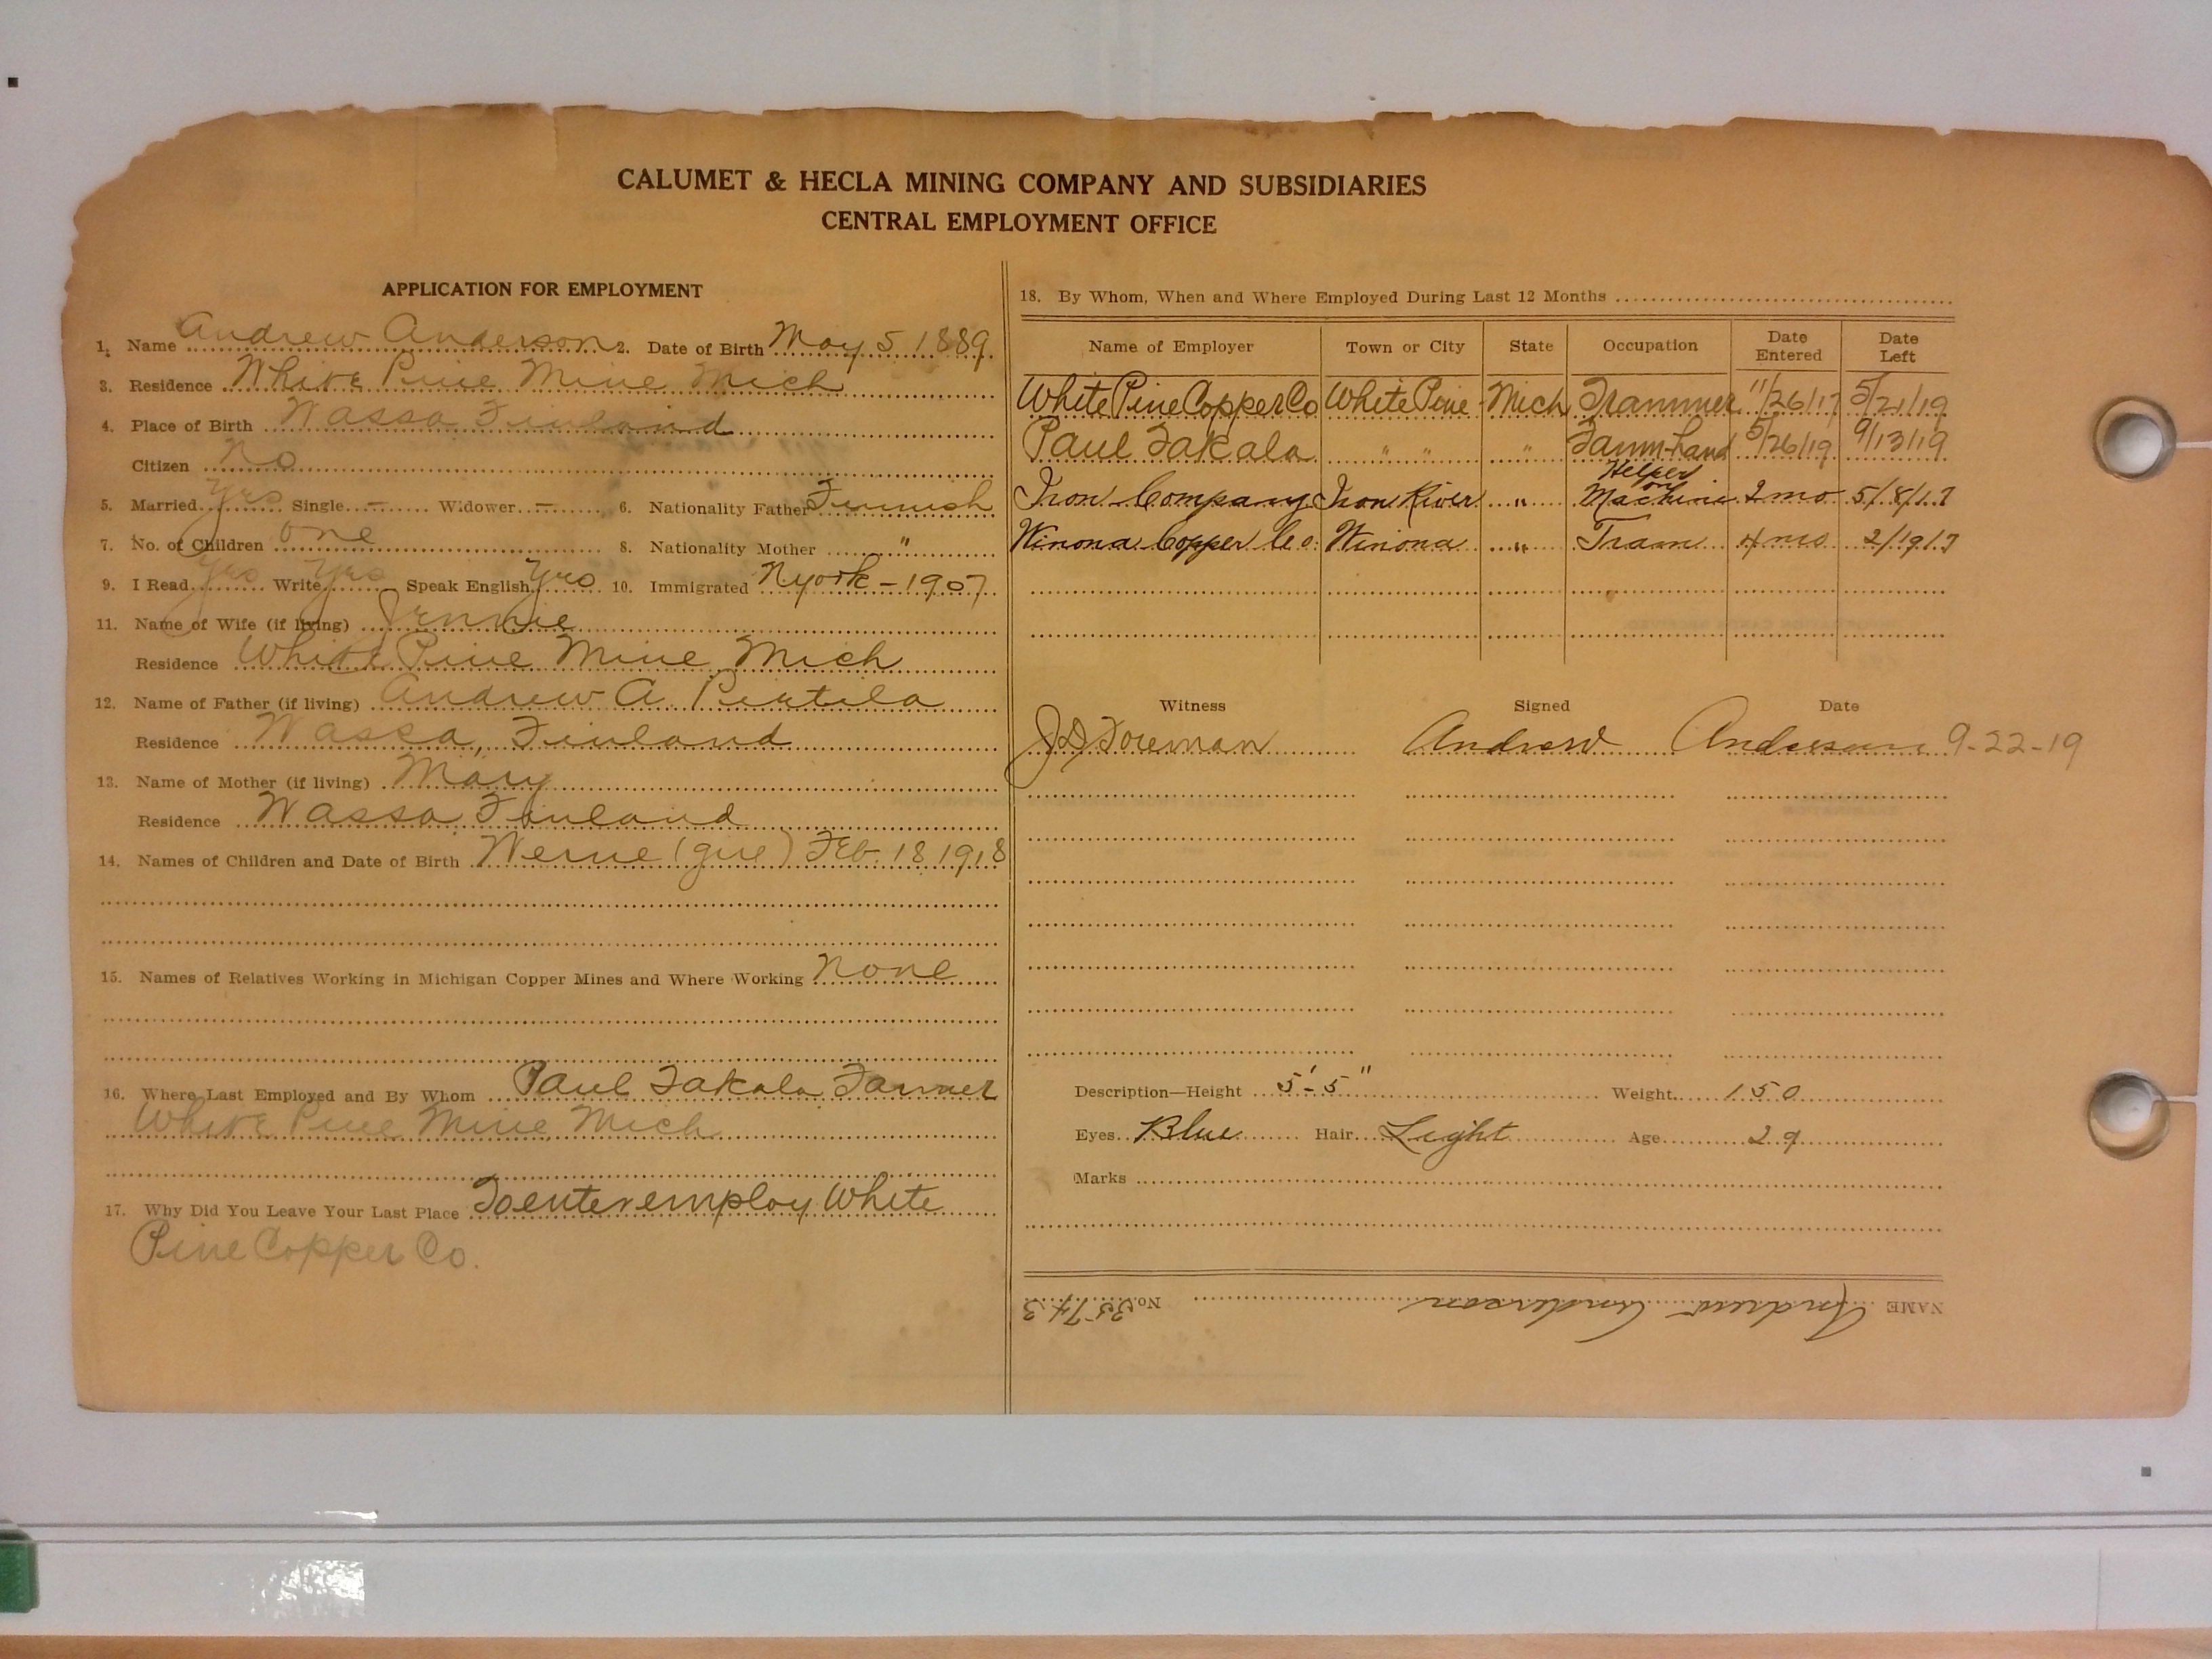 CALUMET & HECLA MINING COMPANY AND SUBSIDIARIES
CENTRAL EMPLOYMENT OFFICE
APPLICATION FOR EMPLOYMENT
1. Name Andrew Anderson 2. Date of Birth May 5 1889
3. Residence White Pine Mine Mich
4. Place of Birth Wassa Finland
Citizen No
5. Married Yes Single - Widower - 6. Nationality Father Finnish
7. No. of Children one 8. Nationality Mother "
9. I Read Yes Write Yes Speak English Yes 10. Immigrated N york - 1907
11. Name of Wife (if living) Jennie
Residence White Pine Mine Mich
12. Name of Father (if living) Andrew A.
Residence Wassa, Finland
13. Name of Mother (if living) Mary
Residence Wassa Finland
14. Names of Children and Date of Birth Feb. 18 1918
15. Names of Relatives Working in Michigan Copper Mines and Where Working None
16. Where Last Employed and By Whom Paul Takala Farmer
White Pine Mine Mich
17. Why Did You Leave Your Last Place To enter employ White
Pine Copper Co.
18. By Whom, When and Where Employed During Last 12 Months
Name of Employer Town or City State Occupation Date Entered Date Left
White Pine Copper Co White Pine Mich Trammer 11/26/17 5/21/19
Paul Takala " " " Farm-hand 5/26/19 9/13/19
Iron Company Iron River " Helper on Machine 2 mo 5/8/17
Winona Copper Co. Winona " Tram 4 mo 2/19/17
Witness Signed Date
Foreman Andrew Anderson 9-22-19
Description—Height 5'-5" Weight 150
Eyes Blue Hair Light Age 29
Marks
NAME Andrew Anderson No. 35743